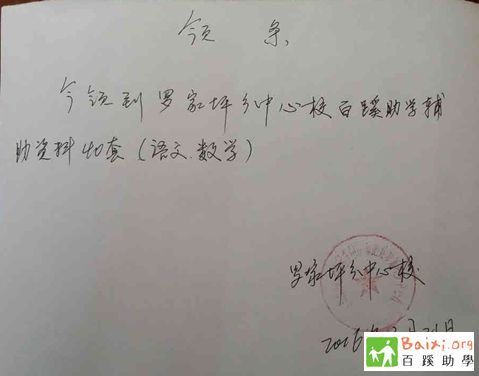 领条
今领到罗家坪乡中心校百蹊助学辅
助资料40套(语文、数学)
罗家坪乡中心校
Baixi.org
百蹊助學